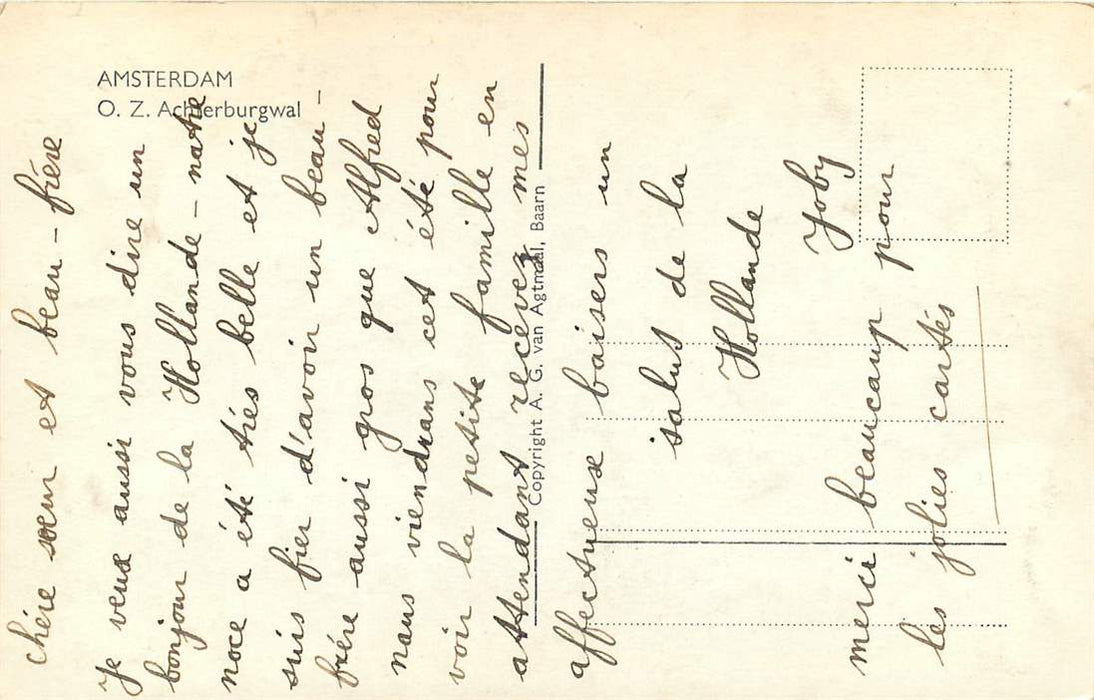 AMSTERDAM
O. Z. Achterburgwal
chére sœur et beau-frére
Je veux aussi vous dire un
bonjour de la Hollande - notre
noce a été trés belle et je
suis fier d'avoir un beau-
frére aussi gros que Alfred
nous viendrons cet été pour
voir la petite famille en
attendant recevez mes
affectueux baisers un
salut de la
Hollande
Yoby
merci beaucoup pour
les jolies cartes
Copyright A. G. van Agtmaal, Baarn